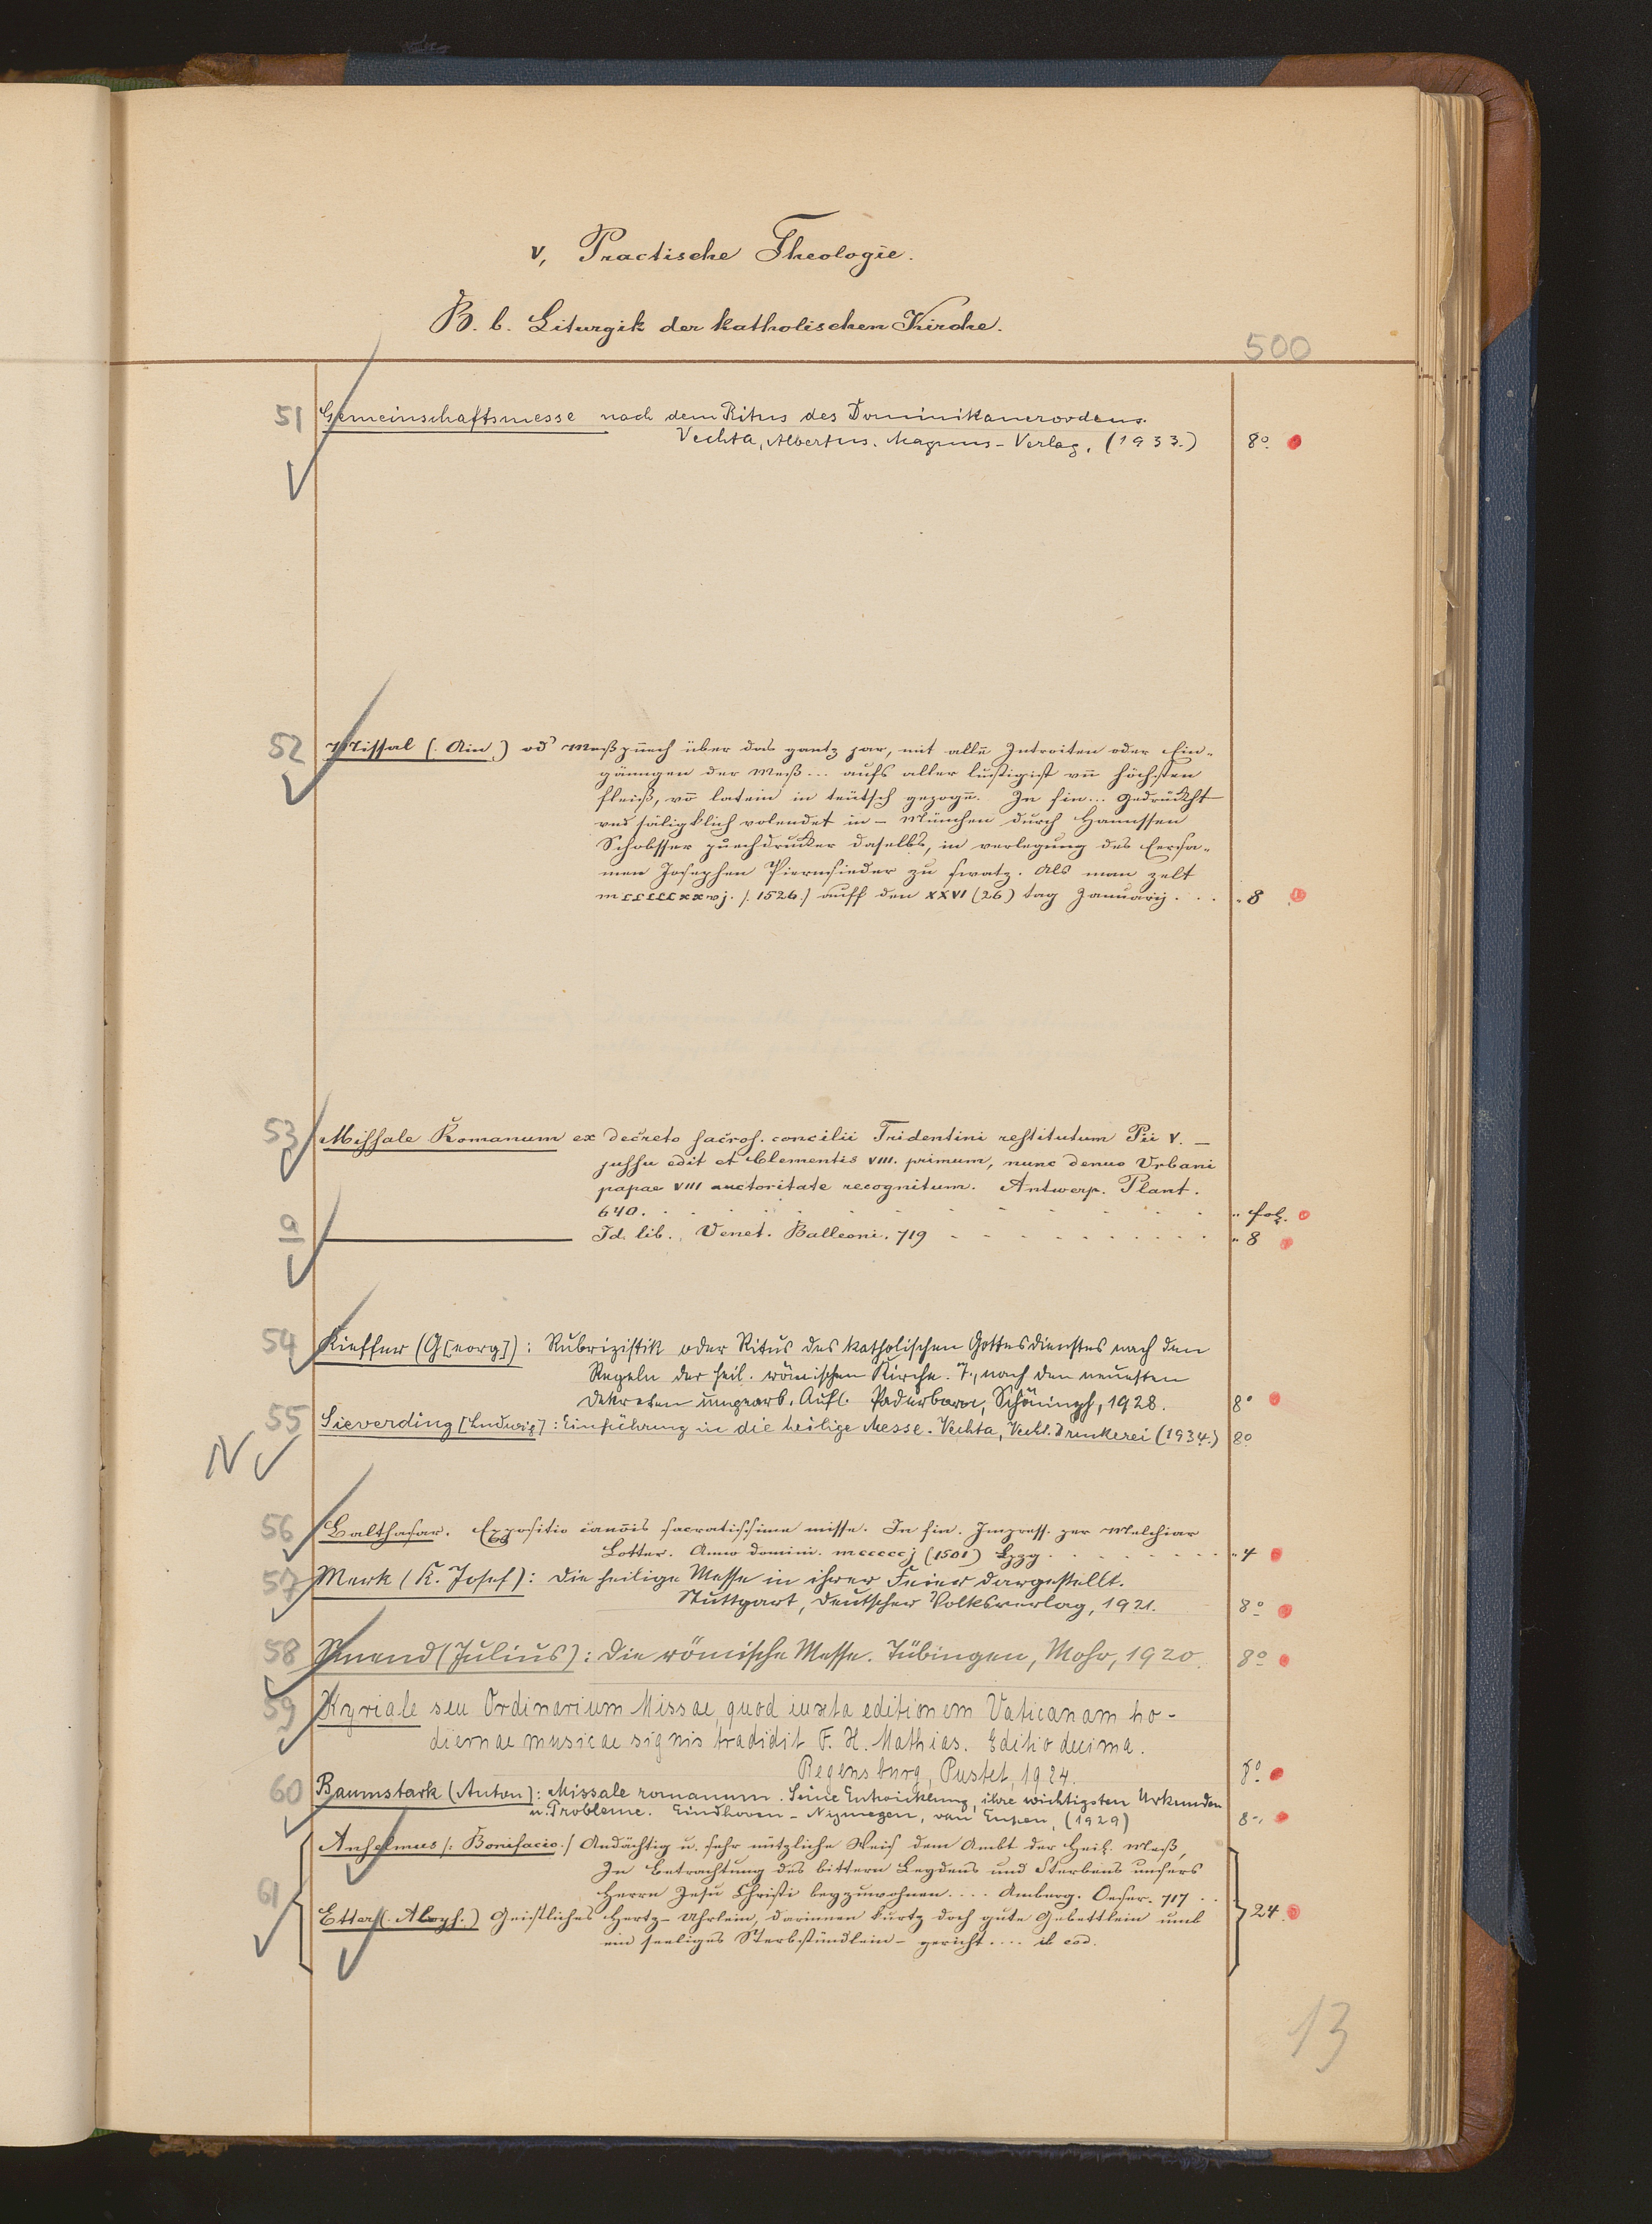 V, Practische Theologie.
B. b. Liturgik der katholischen Kirche.
500
51 Gemeinschaftsmesse nach dem Ritus des Dominikanerordens.
Vechta, Albertus-Magnus-Verlag, (1933.) 8°.
52 Missal (: Ain :) od' Meßpuech über das gantz jar, mit allē Introiten oder Ein-
gänngen der Meß... aufs aller lustigist vn̄ höchsten
fleiß, vō latein in teütsch gezogē. In fin... Gedruckht
und säligklich volendet in – München durch Hannssen
Schobsser puechdrucker daselbs, in verlegung des Ersa-
men Josephen Piernsieder zu swatz. Als man zelt
mcccccxxvj. /.1526./ auff den XXVI (26) tag Januarij. . . „ 8
53 Missale Romanum ex decreto sacros. concilii Tridentini restitutum Pii V. –
jussu edit et Clementis VIII. primum, nunc denuo Urbani
papae VIII auctoritate recognitum. Antwerp. Plant.
640. „ fol.
a Id. lib. Venet. Balleoni. 719 „ 8
54 Kieffer (G[eorg]): Rubrizistik oder Ritus des katholischen Gottesdienstes nach den
Regeln der heil. römischen Kirche. 7., nach den neuesten
Dekreten umgearb. Aufl. Paderborn, Schöningh, 1928. 8°
55 Sieverding [Ludwig]: Einführung in die heilige Messe. Vechta, Vecht. Druckerei (1934.) 8°
N
56 Balthasar. Expositio canōis sacratissime misse. In fin. Impress. per Melchiar
Lotter. Anno domini. mcccccj (1501) Lpzg. „ 4
57 Merk (K. Josef): Die heilige Messe in ihrer Feier dargestellt.
Stuttgart, Deutscher Volksverlag, 1921. 8°
58 Smend (Julius): Die römische Messe. Tübingen, Mohr, 1920. 8°
59 Kyriale seu Ordinarium Missae, quod iuxta editionem Vaticanam ho-
diernae musicae signis tradidit F. X. Mathias. Editio decima.
Regensburg, Pustet, 1924. 8°
60 Baumstark (Anton): Missale romanum. Seine Entwicklung, ihre wichtigsten Urkunden
u. Probleme. Eindhoven – Nijmegen, van Eupen, (1929) 8°
61 Anselmus /: Bonifacio :/ Andächtig u. sehr nützliche Weis dem Ambt der Heil. Meß,
In Betrachtung des bittern Leydens und Sterbens unsers
Herrn Jesu Christi beyzuwohnen.... Amberg. 717
Etter (: Aloys. :) Geistliches Hertz-Uhrlein, darinnen kurtz doch gute Gebettlein umb 24.
ein seeliges Sterbstündlein – gericht.... ib eod.
13